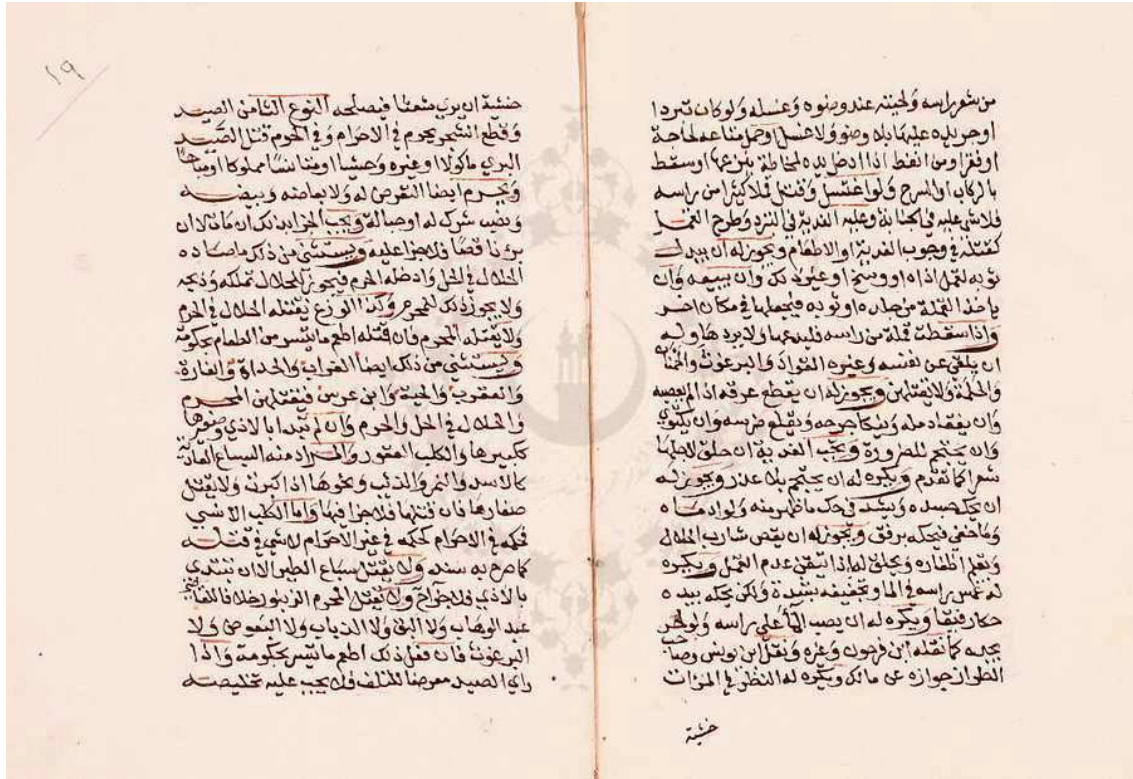 من شعر راسه ولحيته عند وضوه وغسله ولوكان تبردا
او جر يده عليهما بلا وضو ولا غسل او حمل متاعه لحاجة
او فقر او من ابط اذا ادخل يده لمخاطة ينزعها او سقط
بالركاب او السرج ولو اغتسل وقتل قملا كثيرا من راسه
فلا شي عليه في الجنابة وعليه الفدية في التبرد وطرح القمل
كقتله في وجوب الفدية او الاطعام ويجوز له ان يبدل
ثوبه لقمل اذاه او وسخ او غير ذلك وان يبيعه وان
ياخذ القملة من جلده او ثوبه فيجعلها في مكان اخر
واذا سقطت قملة من راسه فليدعها ولا يردها وله
ان يلقي عن نفسه وغيره القراد والبرغوث والحمنان
والحلمة ولا يقتلهن ويجوز له ان يقطع عرقه اذا لم يعصبه
وان يفقا دمله وينكا جرحه ويقلع ضرسه وان يكتوي
وان يحتجم للضرورة وتجب الفدية ان حلق لاجلها
شعرا كما تقدم ويكره له ان يحتجم بلا عذر ويجوز له
ان يحك جسده ويشد في حك ما ظهر منه ولو ادماه
وما خفي فيحكه برفق ويجوز له ان يقص شارب الحلال
ويقلم اظفاره ويحلق له اذا تيقن عدم القمل ويكره
له غمس راسه في الما وتجفيفه بشدة ولكن يحكه بيده
حكا رفيقا ويكره له ان يصب الما على راسه ولو لحر
يجده كما نقله ابن فرحون وغيره ونقل ابن يونس وصاحب
الطراز جوازه عن مالك ويكره له النظر في المرات
خشية
١٩
خشية ان يري شعثا فيصلحه النوع الثامن الصيد
وقطع الشجر يحرم في الاحرام وفي الحرم قتل الصيد
البري ماكولا او غيره وحشيا او متانسا مملوكا او مباحا
ويحرم ايضا التعرض له ولابعاضه وبيضه
ونصب شرك له او حبالة ويجب الجزا بذلك ان مات الا ان
برئ ناقصا فلا جزا عليه ويستثنى من ذلك ما صاده
الحلال في الحل وادخله الحرم فيجوز للحلال تملكه وذبحه
ولا يجوز ذلك للمحرم وكذا الوزغ يقتله الحلال في الحرم
ولا يقتله المحرم فان قتله اطعم ما تيسر من الطعام بحكومة
ويستثنى من ذلك ايضا الغراب والحداة والفارة
والعقرب والحية وابن عرس فيقتلهن المحرم
والحلال في الحل والحرم وان لم تبدا بالاذي وصغيرها
ككبيرها والكلب العقور والمراد منه السباع العادية
كالاسد والنمر والذئب ونحوها اذا كبرت ولا يقتل
صغارها فان قتلها فلا جزا فيها واما الكلب الانسي
فحكمه في الاحرام كحكمه في غير الاحرام لا شي في قتله
كما صرح به سند ولا يقتل سباع الطير الا ان تبتدي
بالاذي فلا جزا ولا يقتل المحرم الزنبور خلافا للقاضي
عبد الوهاب ولا البق ولا الذباب ولا البعوض ولا
البرغوث فان فعل ذلك اطعم ما تيسر بحكومة واذا
راي الصيد معرضا للتلف فلا يجب عليه تخليصه